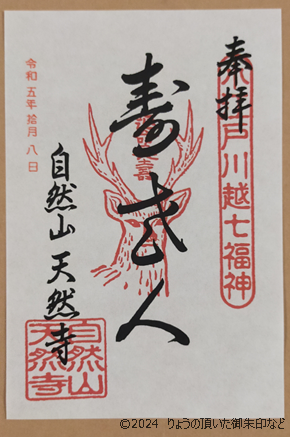 奉拝
小江戸川越七福神
寿老人
令和五年拾月八日
自然山 天然寺
自然山
天然寺
©2024 りょうの頂いた御朱印など